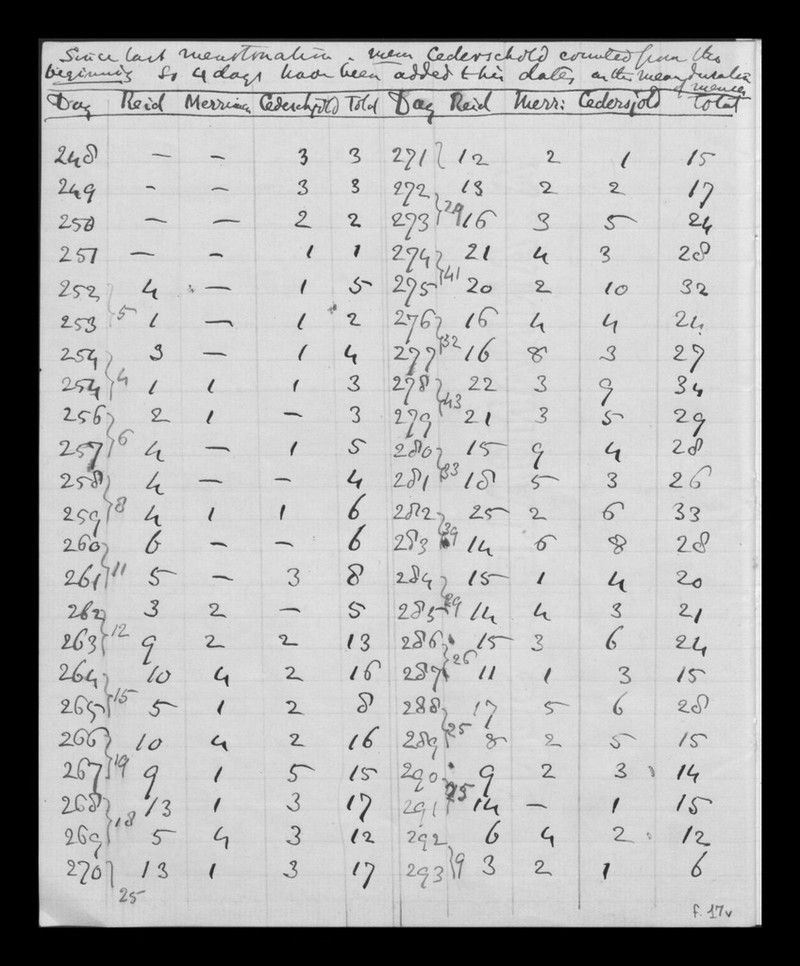 Since last menstruation. mem Cederschold counted from the
beginning so 4 days have been added this date, on the mean duration
of menses
Day Reid Merriman Cederschjold Total Day Reid Merri: Cedersjold total
248 — — 3 3 271 12 2 1 15
249 - - 3 3 272 13 2 2 17
29
250 — — 2 2 273 16 3 5 24
251 — - 1 1 274 21 4 3 28
41
252 4 — 1 5 275 20 2 10 32
5
253 1 — 1 2 276 16 4 4 24
32
254 3 — 1 4 277 16 8 3 27
4
254 1 1 1 3 278 22 3 9 34
43
256 2 1 — 3 279 21 3 5 29
6
257 4 — 1 5 280 15 9 4 28
33
258 4 — — 4 281 18 5 3 26
8
259 4 1 1 6 282 25 2 6 33
39
260 6 — — 6 283 14 6 8 28
11
261 5 — 3 8 284 15 1 4 20
29
262 3 2 — 5 285 14 4 3 21
12
263 9 2 2 13 286 15 3 6 24
26
264 10 4 2 16 287 11 1 3 15
15
265 5 1 2 8 288 17 5 6 28
25
266 10 4 2 16 289 8 2 5 15
19
267 9 1 5 15 290 9 2 3 14
25
268 13 1 3 17 291 14 — 1 15
18
269 5 4 3 12 292 6 4 2 12
9
270 13 1 3 17 293 3 2 1 6
25
f. 17v